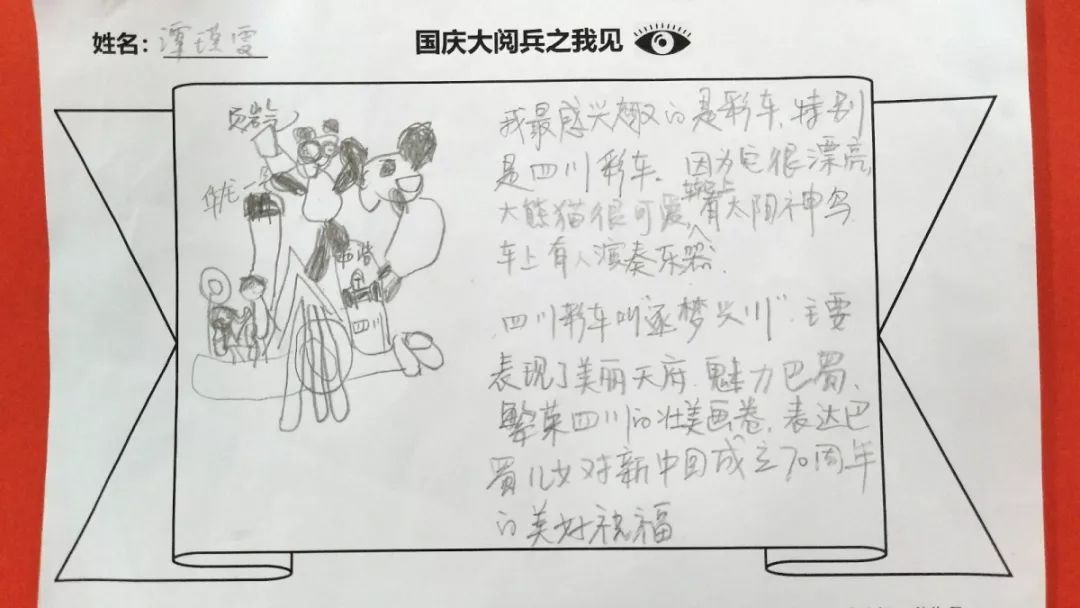 姓名：谭瑾雯
国庆大阅兵之我见
我最感兴趣的是彩车，特别
是四川彩车。因为它很漂亮，
大熊猫很可爱，有太阳神鸟
车上有人演奏乐器。
四川彩车叫“逐梦兴川”，主要
表现了美丽天府、魅力巴蜀、
繁荣四川的壮美画卷，表达巴
蜀儿女对新中国成立70周年
的美好祝福
四川